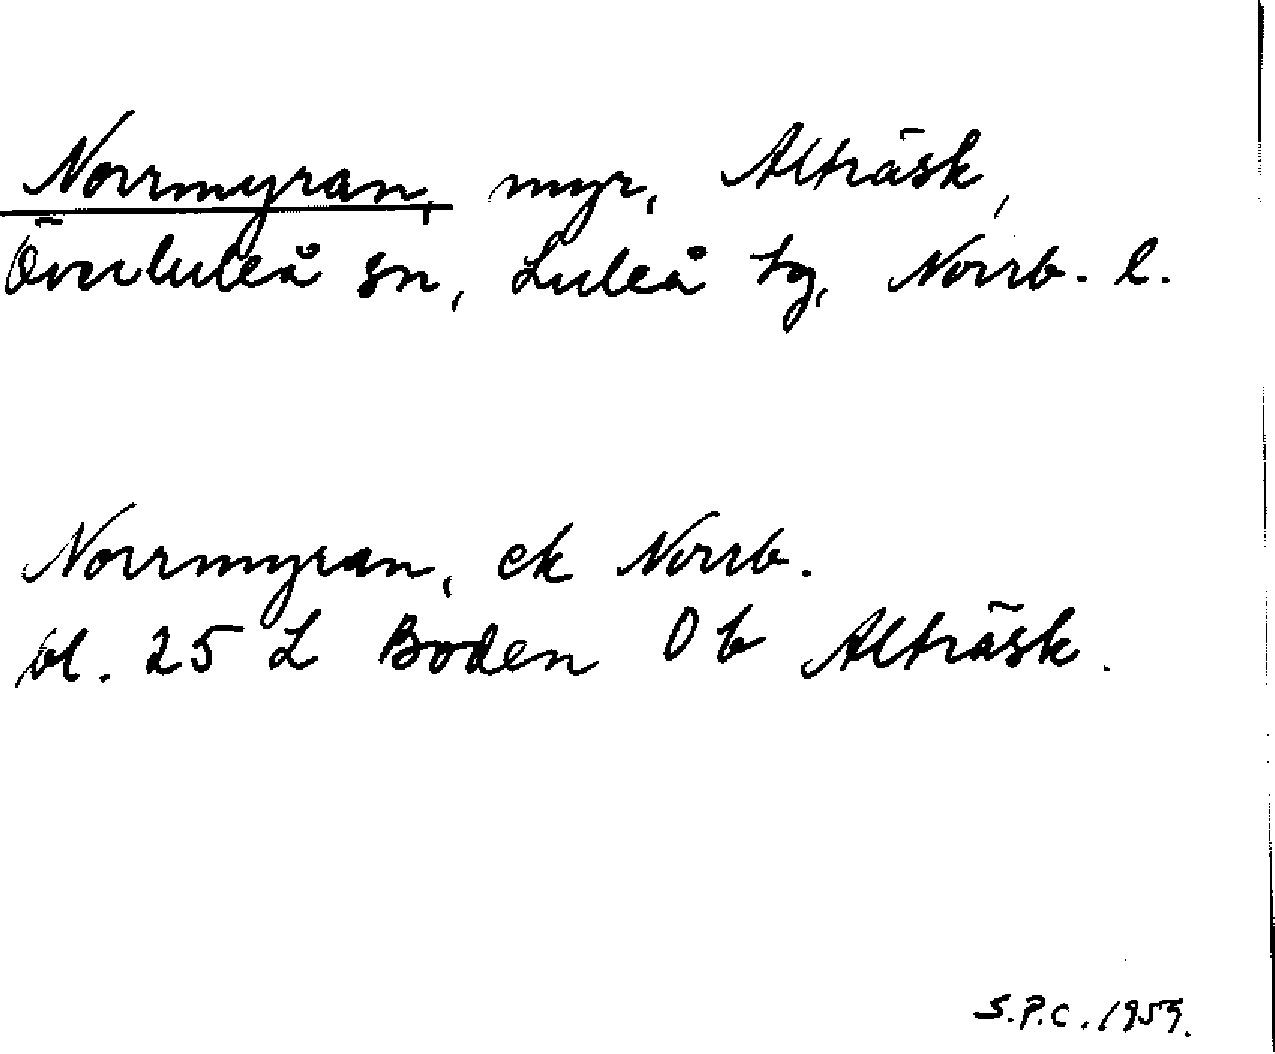 Norrmyran, myr, Alträsk,
Överluleå sn, Luleå tg, Norrb. l.
Norrmyran, ek Norrb.
bl. 25 L Boden 0 b Alträsk.
S.P.C. 1959.